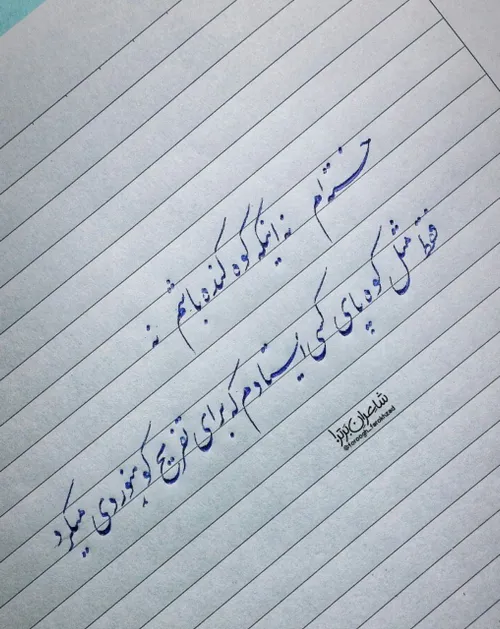 خسته‌ام نه اینکه کوه کنده باشم نه
فقط مثل کوه پای کسی ایستادم که برای تفریح کوهنوردی میکرد
شاعران برتر
@foroogh_farokhzad